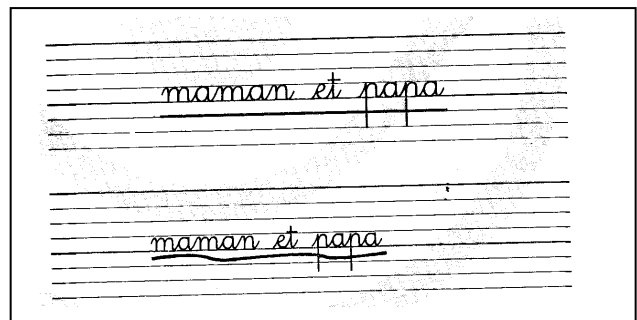 maman et papa
maman et papa